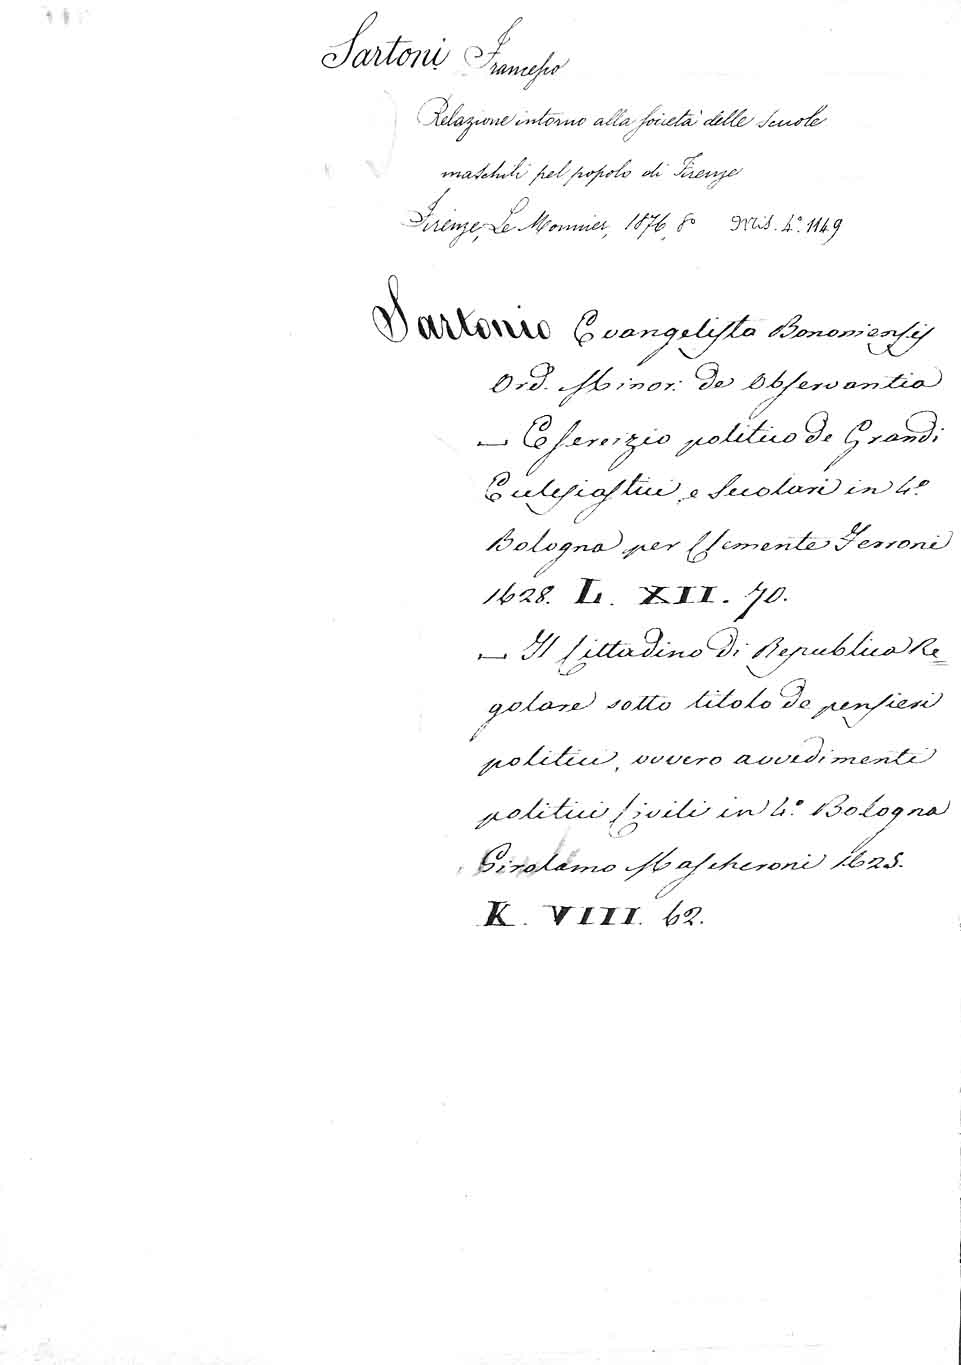 Sartoni Francesco
Relazione intorno alla società delle scuole
maschili pel popolo di Firenze
Firenze, Le Monnier, 1876, 8° Mis. 4°. 1149
Sartonio Evangelista Bononiensis
Ord. Minor: de Observantia
— Esercizio politico de Grandi
Eclesiastici, e Secolari in 4°.
Bologna per Clemente Ferroni
1628. L. XII. 70.
— Il Cittadino di Republica Re=
golare sotto titolo de pensieri
politici, ovvero avvedimenti
politici Civili in 4°. Bologna
Girolamo Mascheroni 1625.
K. VIII. 62.